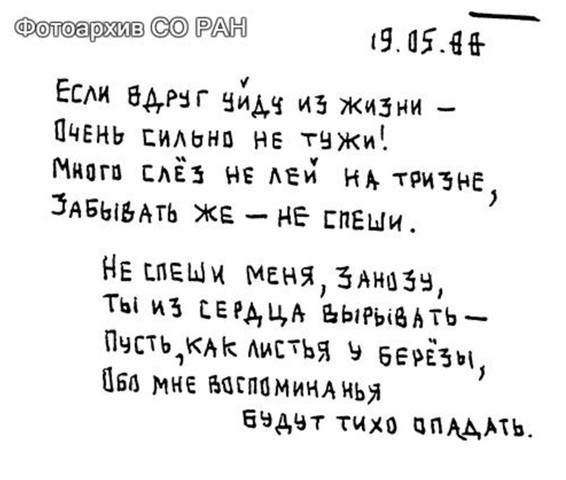 Фотоархив СО РАН
19.05.88
Если вдруг уйду из жизни –
Очень сильно не тужи!
Много слёз не лей на тризне,
Забывать же – не спеши.
Не спеши меня, занозу,
Ты из сердца вырывать –
Пусть, как листья у берёзы,
Обо мне воспоминанья
будут тихо опадать.